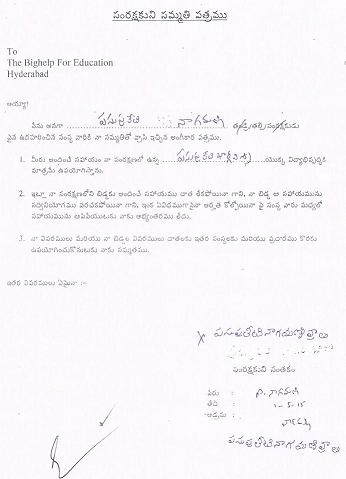 సంరక్షకుని సమ్మతి పత్రము
To
The Bighelp For Education
Hyderabad
అయ్యా!
నేను అనగా పసుపులేటి నాగమణి తండ్రి/తల్లి/సంరక్షకుడు
పైన ఉదహరించిన సంస్థ వారికి నా సమ్మతితో వ్రాసి ఇచ్చిన అంగీకార పత్రము.
1. మీరు అందించే సహాయం నా సంరక్షణలో ఉన్న పసుపులేటి యొక్క విద్యాభివృద్ధికి
మాత్రమే ఉపయోగిస్తాను.
2. ఇట్లా నా సంరక్షణలోని బిడ్డకు అందించే సహాయము చాత లేకపోయినా గాని, నా బిడ్డ ఆ సహాయమును
సద్వినియోగము పరచకపోయినా గాని, ఇంక ఏవిధముగానైనా అర్హత కోల్పోయినా పై సంస్థ వారు మధ్యలో
సహాయమును ఆపివేయుటకు నాకు అభ్యంతరము లేదు.
3. నా వివరములు మరియు నా బిడ్డల వివరములు దాతలకు ఇతర సంస్థలకు మరియు ప్రచారము కొరకు
ఉపయోగించుకొనుటకు నాకు సమ్మతము.
ఇతర వివరములు ఏమైనా :-
x పసుపులేటి నాగమణి
సంరక్షకుని సంతకం
పేరు : P. నాగమణి
తేది : 1-5-15
అడ్రసు :
పసుపులేటి నాగమణి